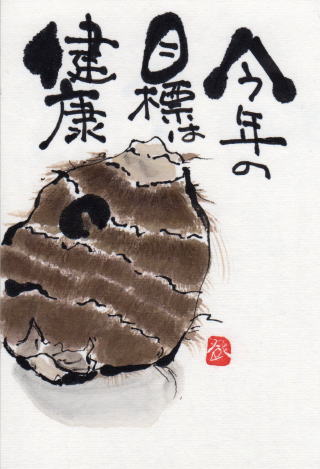 今年の
目標は
健康